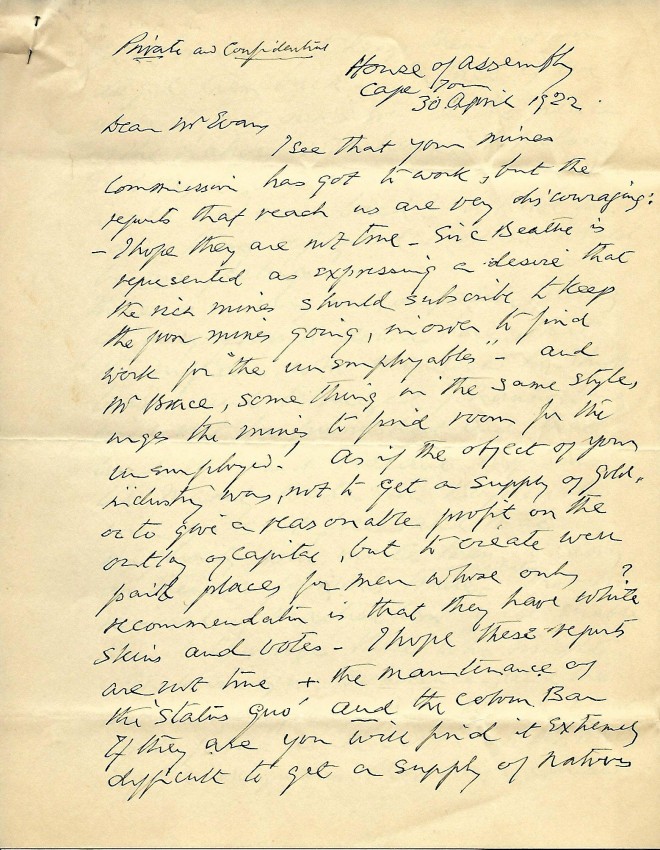 Private and Confidential
House of Assembly
Cape Town
30 April 1922.
Dear Mr Evans
I see that your mines
Commission has got to work, but the
reports that reach us are very discouraging:
- I hope they are not true - Sir C Beattie is
represented as expressing a desire that
the rich mines should subscribe to keep
the poor mines going, in order to find
work for "the unemployables" - and
Mr Brace, something in the same style,
urges the mines to find room for the
unemployed! As if the object of your
industry was, not to get a supply of Gold,
or to give a reasonable profit on the
outlay of Capital, but to create well
paid places for men whose only
recommendation is that they have white ?
skins and votes - I hope these reports
are not true + the maintenance of
the 'Status Quo' and the Colour Bar
If they are you will find it extremely
difficult to get a supply of Natives